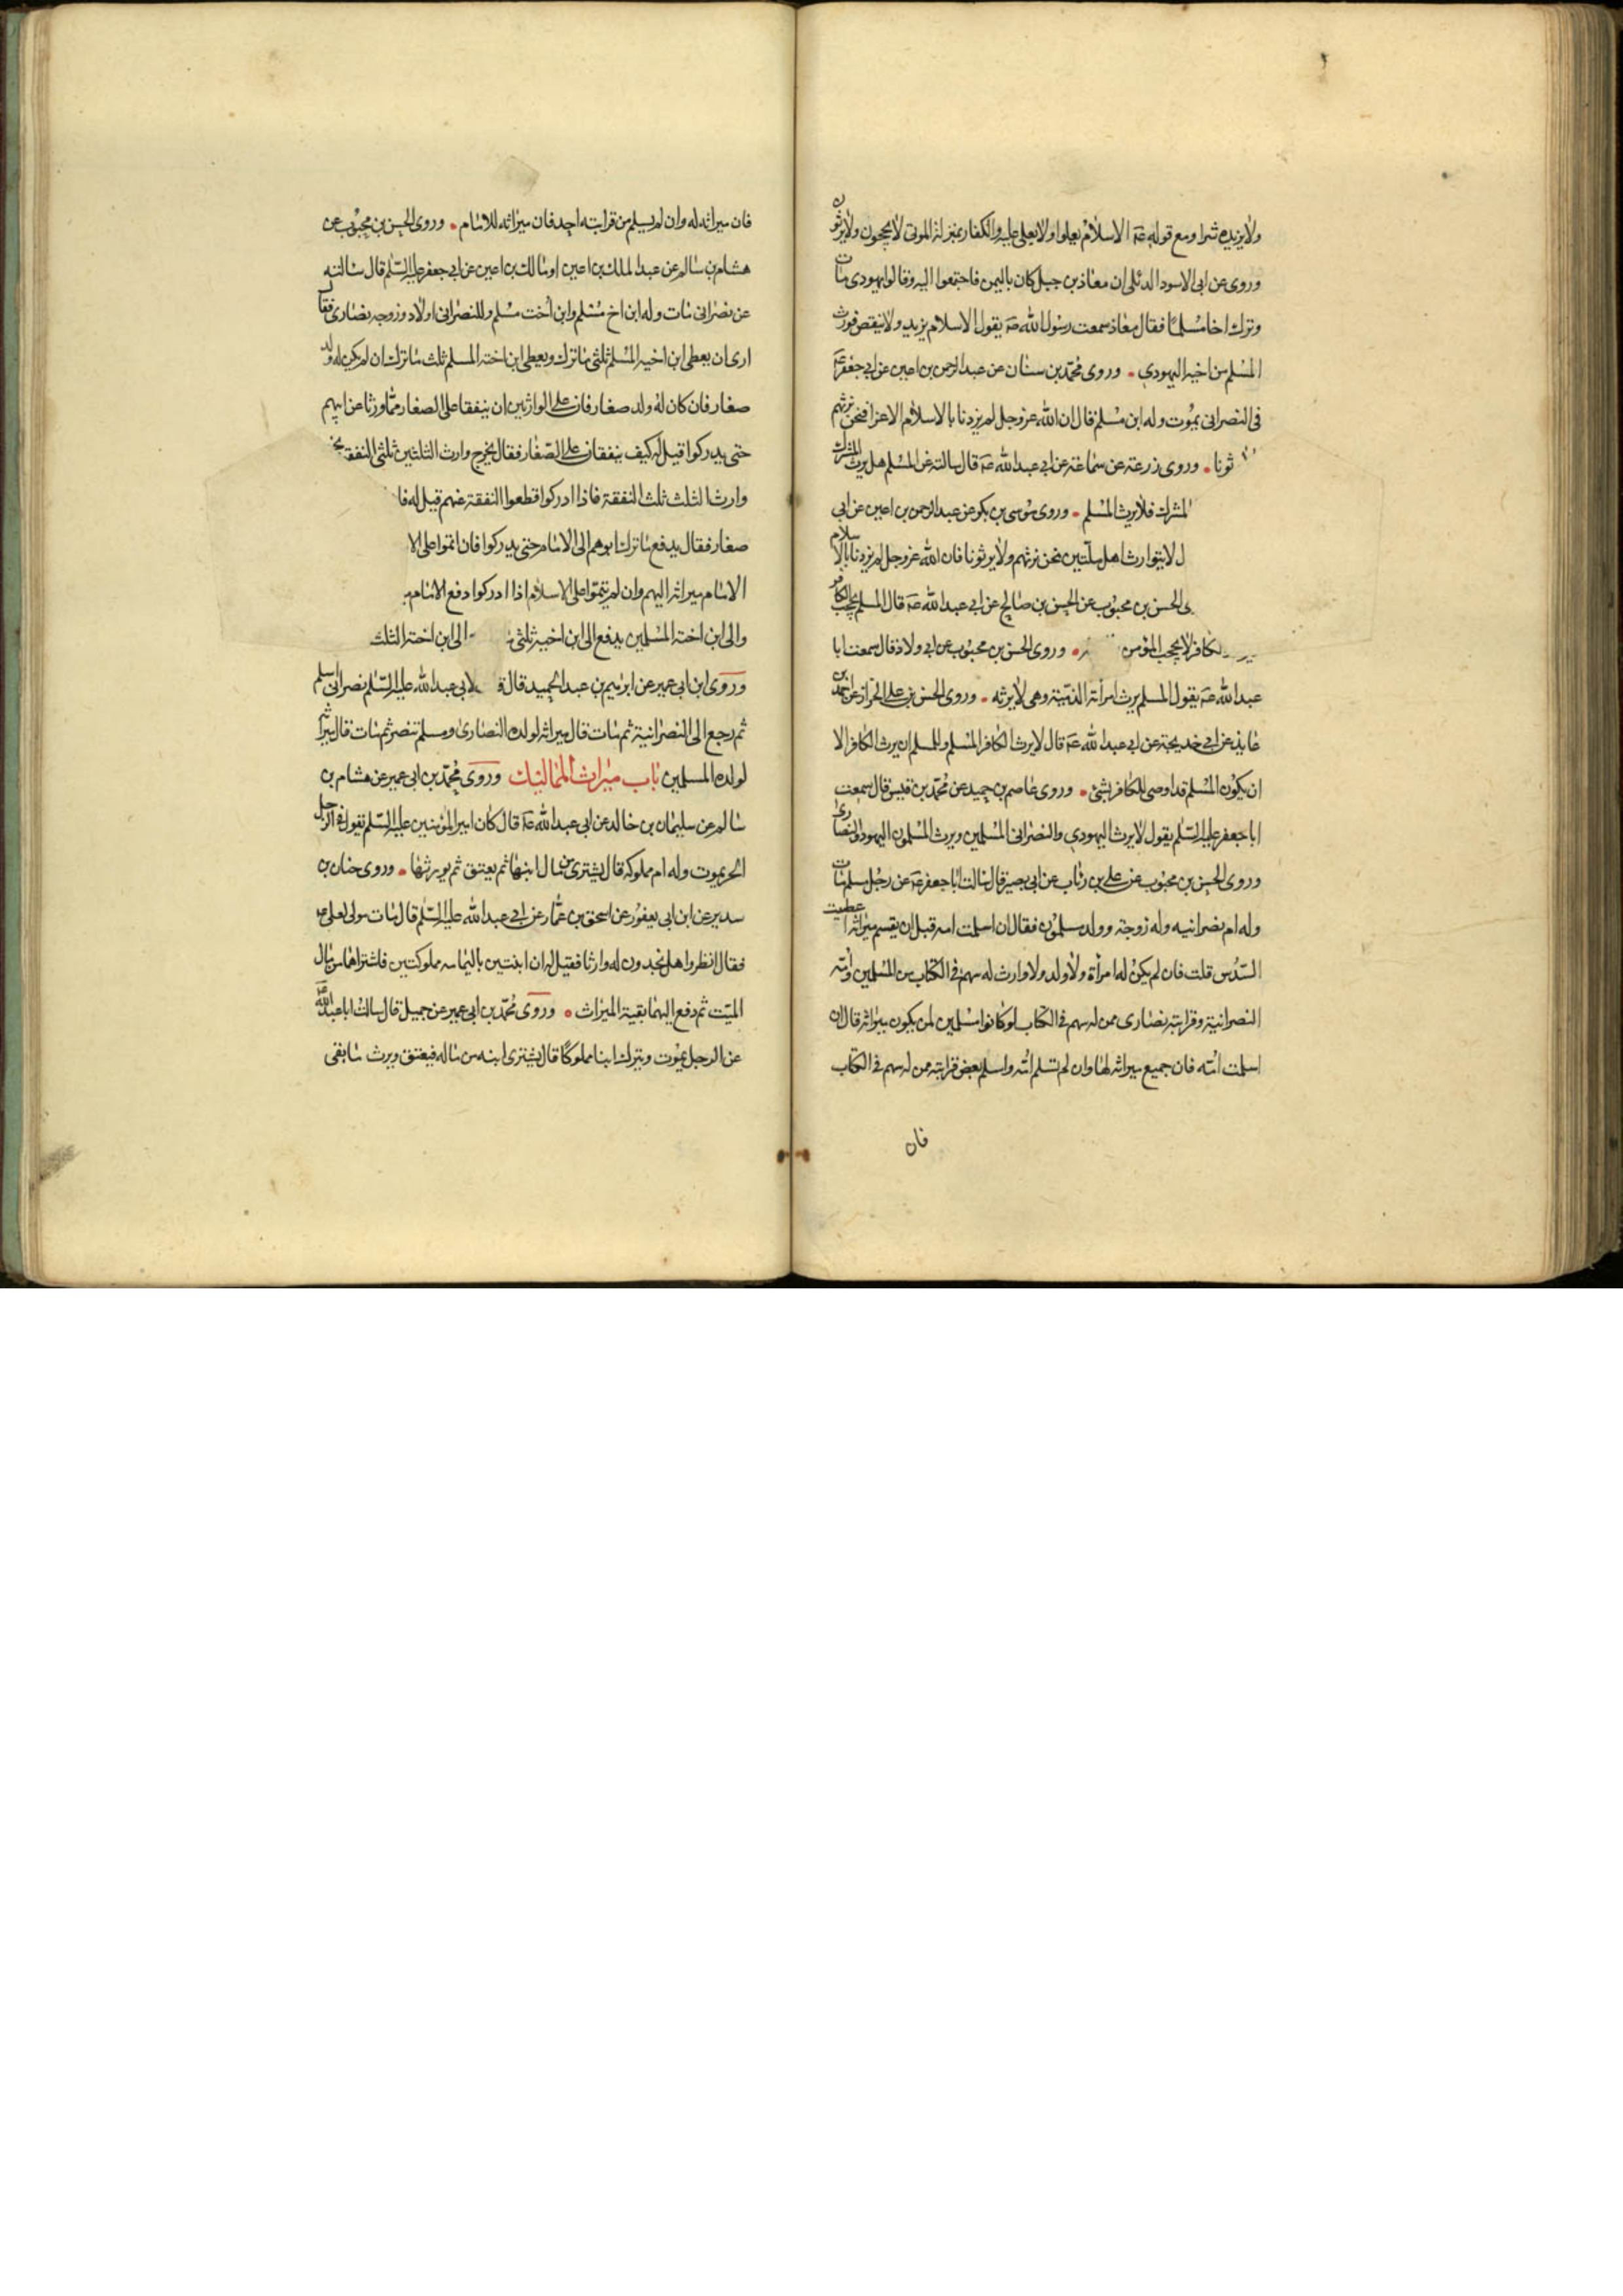 ولا يزيده شرا ومع قوله عه الاسلام يعلوا ولا يعلى عليه والكفار بمنزلة الموتى لا يحجبون ولا يرثون
وروى عن ابى الاسود الدئلى ان معاذ بن جبل كان باليمن فاجتمعوا اليه وقالوا يهودى مات
وترك اخا مسلما فقال معاذ سمعت رسول الله صه يقول الاسلام يزيد ولا ينقص فورث
المسلم من اخيه اليهودي • وروى محمد بن سنان عن عبد الرحمن بن اعين عن ابي جعفر عه
فى النصرانى يموت وله ابن مسلم قال ان الله عز وجل لم يزدنا بالاسلام الا عزا فنحن نرثهم
ثونا • وروى زرعة عن سماعة عن ابي عبد الله عه قال سالته عن المسلم هل يرث المشرك
المشرك فلا يرث المسلم • وروى موسى بن بكر عن عبد الرحمن بن اعين عن ابي
ل لا يتوارث اهل ملتين نحن نرثهم ولا يرثونا فان الله عز وجل لم يزدنا بالاسلام
ى الحسن بن محبوب عن الحسن بن صالح عن ابي عبد الله عه قال المسلم يحجب الكافر
لكافر لا يحجب المؤمن • وروى الحسن بن محبوب عن ابي ولاد قال سمعت ابا
عبد الله عه يقول المسلم يرث امرأته الذمية وهى لا يرثه • وروى الحسن بن على الخزاز عن احمد بن
عايذ عن ابي خديجة عن ابي عبد الله عه قال لا يرث الكافر المسلم وللمسلم ان يرث الكافر الا
ان يكون المسلم قد اوصى للكافر بشئ • وروى عاصم بن حميد عن محمد بن قيس قال سمعت
ابا جعفر عليه السلام يقول لا يرث اليهودي والنصرانى المسلمين ويرث المسلمون اليهود والنصارى
وروى الحسن بن محبوب عن على بن رئاب عن ابى بصير قال سالت ابا جعفر عه عن رجل مسلم مات
وله ام نصرانيه وله زوجة وولد مسلمون فقال ان اسلمت امه قبل ان يقسم ميراثه اعطيت
السدس قلت فان لم يكن له امرأة ولا ولد ولا وارث له سهم فى الكتاب من المسلمين وامه
النصرانية وقرابته نصارى ممن له سهم فى الكتاب لو كانوا مسلمين لمن يكون ميراثه قال ان
اسلمت امه فان جميع ميراثه لها وان لم تسلم امه واسلم بعض قرابته ممن له سهم فى الكتاب
فان
فان ميراثه له وان لم يسلم من قرابته احد فان ميراثه للامام • وروى الحسن بن محبوب عن
هشام بن سالم عن عبد الملك بن اعين او مالك بن اعين عن ابي جعفر عليه السلم قال سالته
عن نصرانى مات وله ابن اخ مسلم وابن أخت مسلم وللنصرانى اولاد وزوجه نصارى فقال
ارى ان يعطى ابن اخيه المسلم ثلثى ما ترك ويعطى ابن اخته المسلم ثلث ما ترك ان لم يكن له ولد
صغار فان كان له ولد صغار فان على الوارثين ان ينفقا على الصغار مما ورثا عن ابيهم
حتى يدركوا قيل له كيف ينفقان على الصغار فقال يخرج وارث الثلثين ثلثى النفقة
وارث الثلث ثلث النفقة فاذا ادركوا قطعوا النفقة عنهم قيل له فا
صغار فقال يدفع ما ترك ابوهم الى الامام حتى يدركوا فان اتموا على الا
الامام ميراثه اليهم وان لم يتموا على الاسلام اذا ادركوا دفع الامام
والى ابن اخته المسلمين يدفع الى ابن اخيه ثلثى الى ابن اخته الثلث
وروى ابن ابى عمير عن ابرهيم بن عبد الحميد قال ق لابى عبد الله عليه السلم نصرانى اسلم
ثم رجع الى النصرانية ثم مات قال ميراثه لولده النصارى ومسلم تنصر ثم مات قال ميراثه
لولده المسلمين باب ميراث المماليك وروى محمد بن ابى عمير عن هشام بن
سالم عن سليمان بن خالد عن ابى عبد الله عه قال كان امير المؤمنين عليه السلم يقول فى الرجل
الحر يموت وله ام مملوكه قال يشترى من مال ابنها ثم يعتق ثم يورثها • وروى حنان بن
سدير عن ابن ابى يعفور عن اسحق بن عمار عن ابي عبد الله عليه السلم قال مات مولى لعلى ص
فقال انظروا هل تجدون له وارثا فقيل له ان ابنتين باليمامه مملوكتين فاشتراهما من مال
الميت ثم دفع اليهما بقية الميراث • وروى محمد بن ابى عمير عن جميل قال سالت ابا عبد الله عه
عن الرجل يموت ويترك ابنا مملوكا قال يشترى ابنه من ماله فيعتق ويرث ما بقى